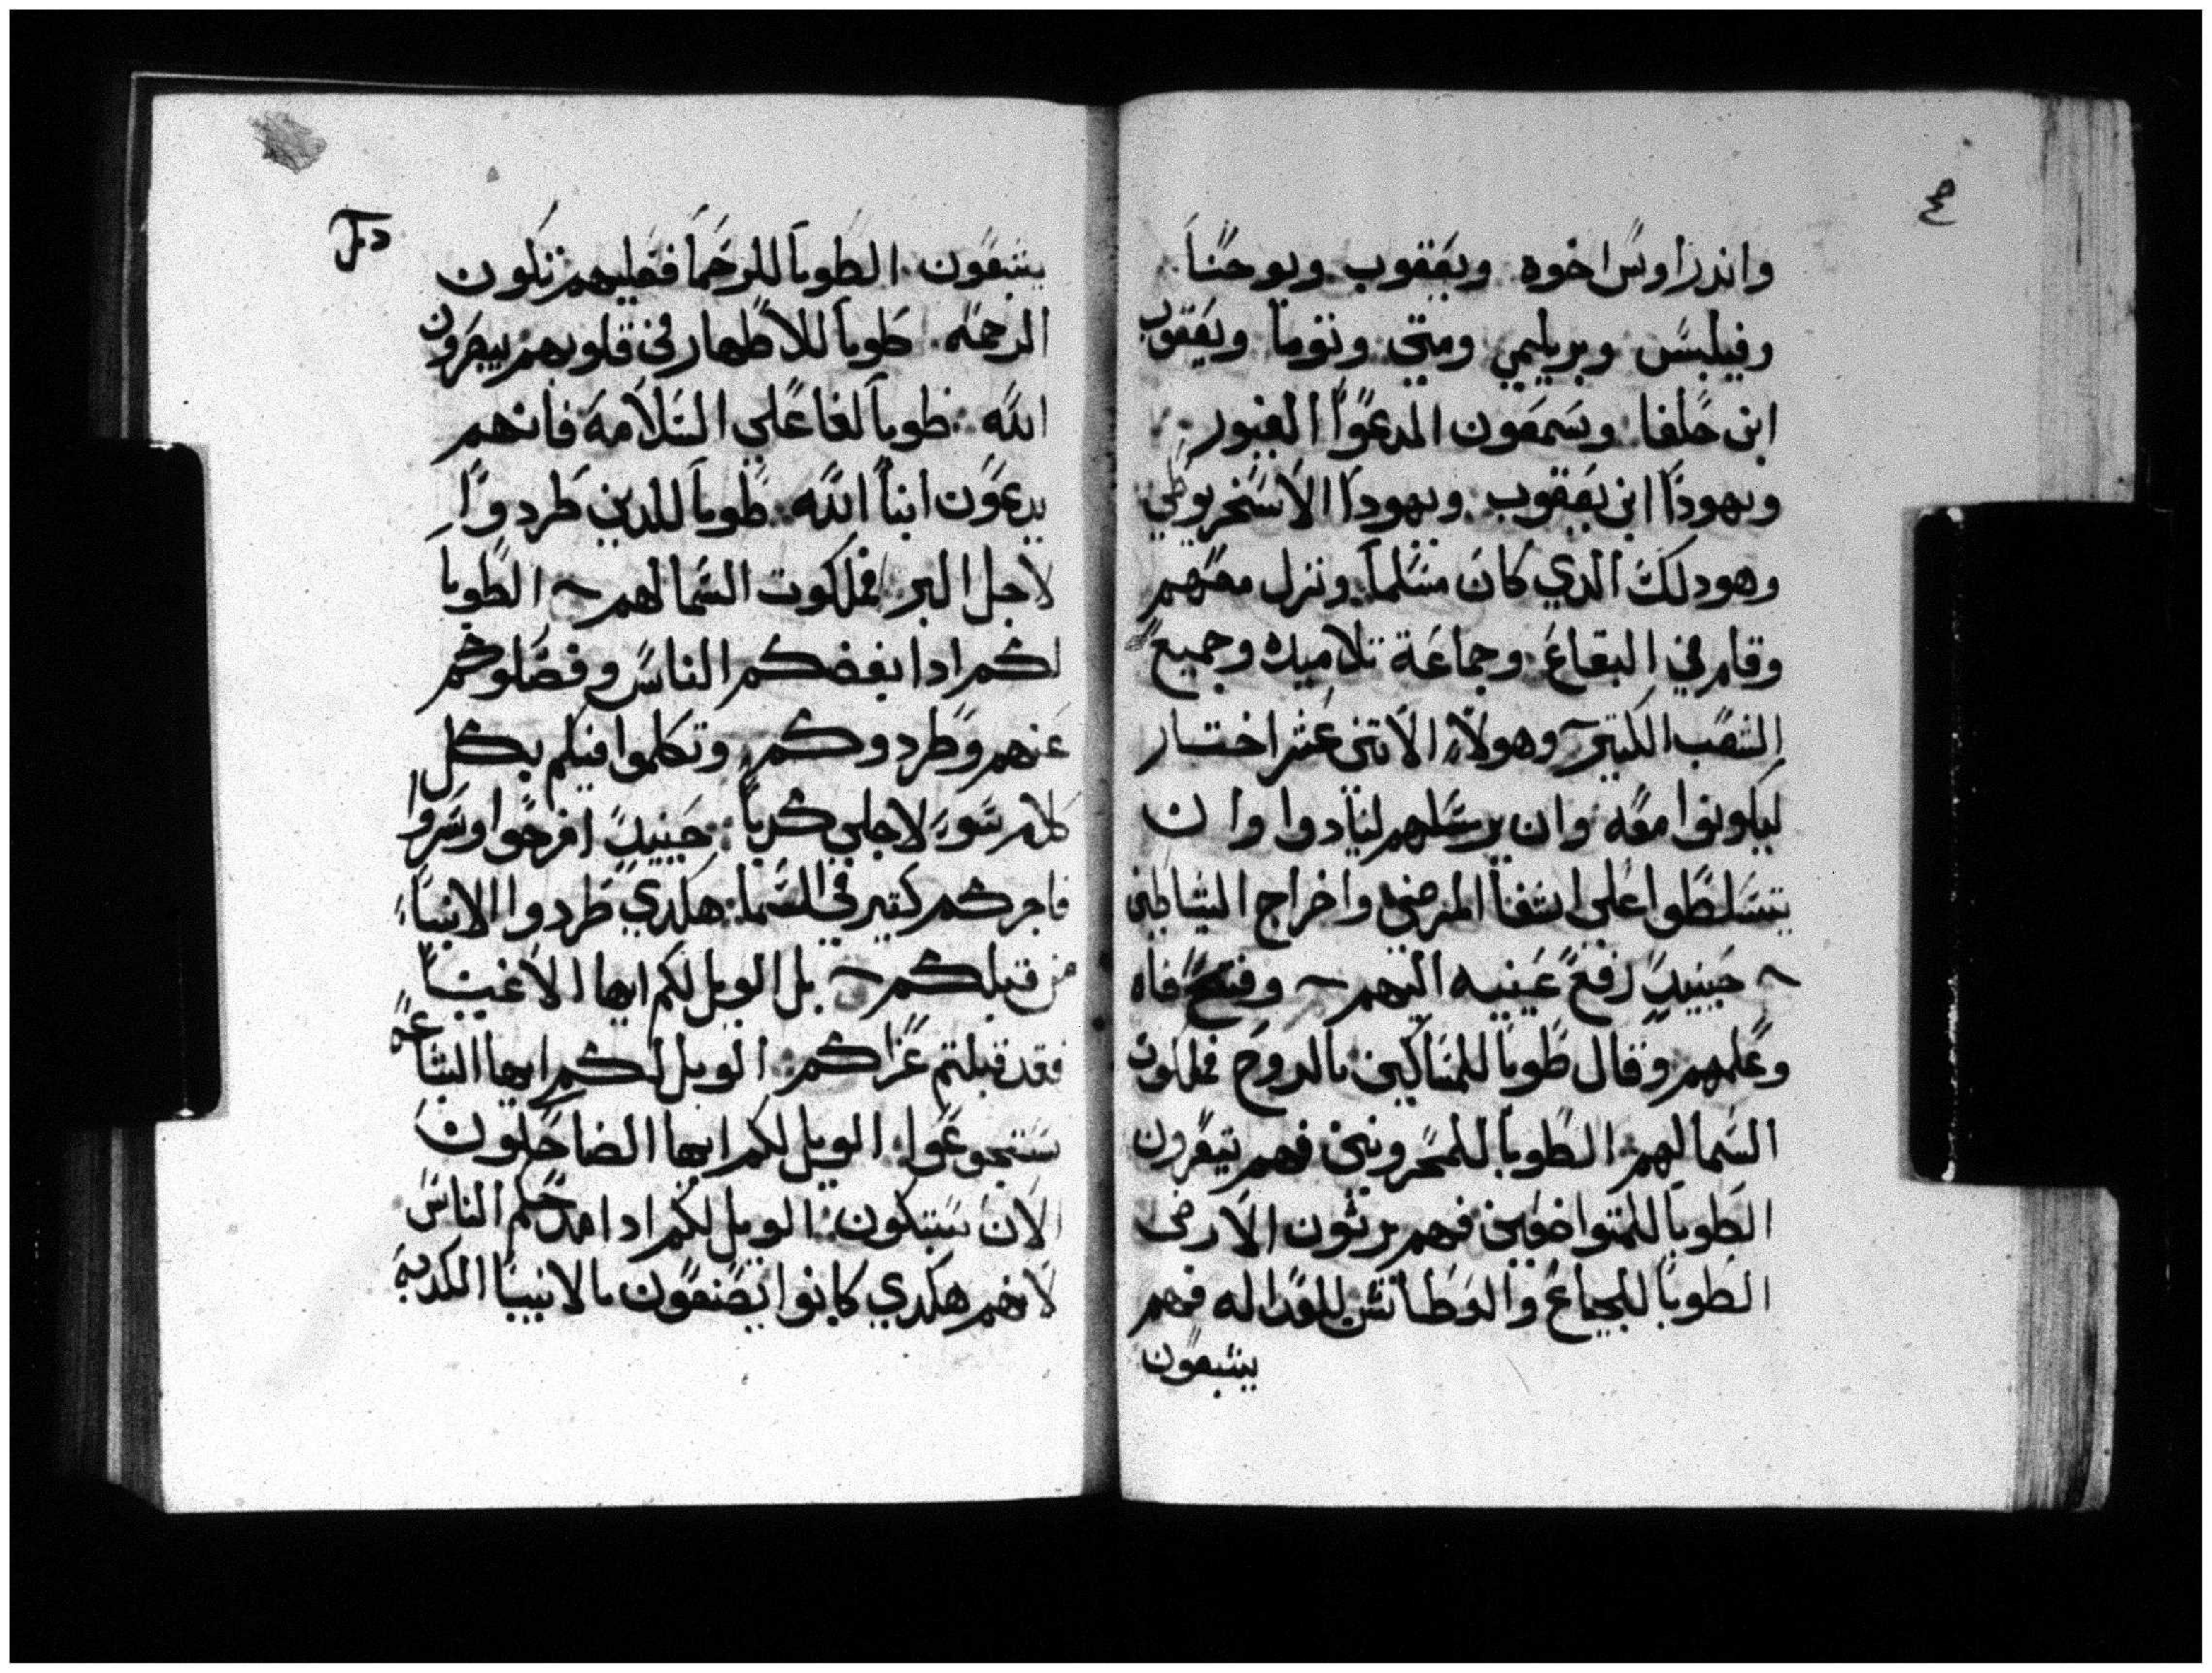 واندراوس اخوه. ويعقوب ويوحنا.
وفيلبس وبرتليمي ومتي وتوما ويعقوب
ابن حلفا وسمعون المدعوا الغيور
ويهودا ابن يعقوب. ويهودا الاسخريوطي
وهو دلك الدي كان مسلما. ونزل معهم
وقام في البقاع وجماعة تلاميده وجميع
الشعب الكتير وهولاء الاتني عشر اختار
ليكونوا معه وان يرسلهم لينادوا وان
يتسلطوا علي اشفا المرضي واخراج الشياطين
~ حينيد رفع عينيه اليهم ~ وفتح فاه
وعلمهم وقال طوبا للمساكين بالروح فملكوت
السما لهم. الطوبا للمحزونين فهم يتعزون
الطوبا للمتواضعين فهم يرثون الارض
الطوبا للجياع والعطاش للعداله فهم
يشبعون
يشبعون. الطوبا للرحما فعليهم تكون
الرحمه. طوبا للاطهار في قلوبهم يبصرون
الله. طوبا لفاعلي السلامة فانهم
يدعون ابنا الله. طوبا للدين طردوا
لاجل البر فملكوت السما لهم ~ الطوبا
لكم ادا بغضكم الناس وفصلوكم
عنهم وطردوكم. وتكلموا فيكم بكل
كلام سو لاجلي كدبا. حينيد افرحوا وسروا
فاجركم كتير في السما. هكدي طردوا الانبيا
من قبلكم ~ بل الويل لكم ايها الاغنيا
فقد قبلتم عزاكم. الويل لكم ايها الشباعه
ستجوعوا. الويل لكم ايها الضاحكون
الان ستبكون. الويل لكم ادا مدحكم الناس
لانهم هكدي كانوا يصنعون بالانبيا الكدبة